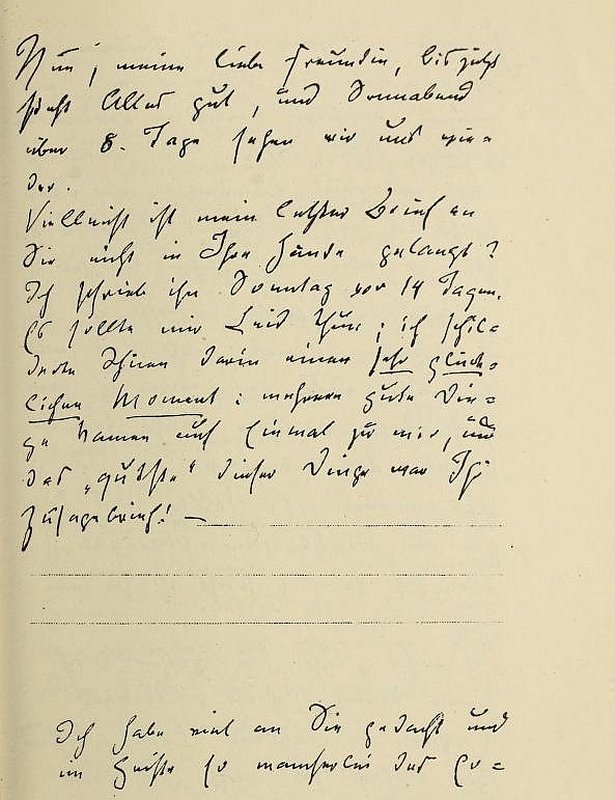 Nun, meine liebe Freundin, bis jetzt
steht Alles gut, und Sonnabend
über 8. Tage sehen wir uns wie=
der.
Vielleicht ist mein letzter Brief an
Sie nicht in Ihre Hände gelangt?
Ich schrieb ihn Sonntag vor 14 Tagen.
Es sollte mir Leid thun; ich schil=
derte Ihnen darin einen sehr glück=
lichen Moment: mehrere gute Din=
ge kamen auf Einmal zu mir, und
das „gutste“ dieser Dinge war Ihr
Zusagebrief! —
Ich habe viel an Sie gedacht und
im Geiste so mancherlei des Er=